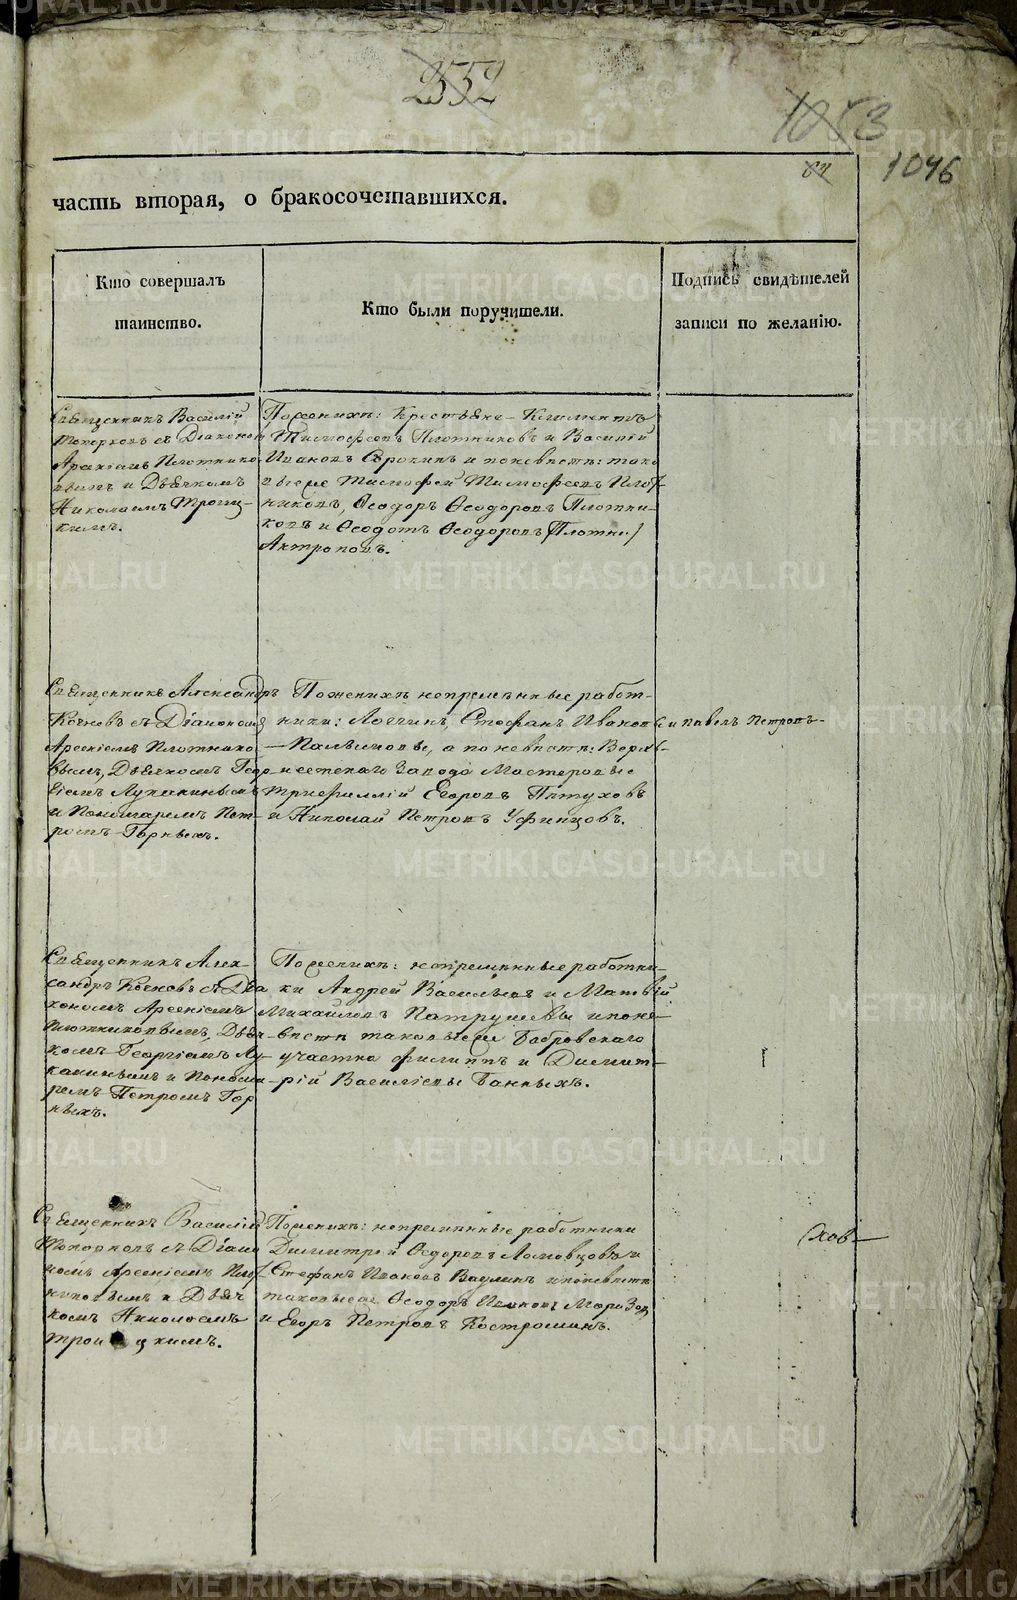 2552
1053
82
1046
часть вторая, о бракосочетавшихся.
Кто совершалъ
таинство.
Кто были поручители.
Подпись свидѣтелей
записи по желанію.
Священникъ Василій
Топорковъ съ Діакономъ
Арсеніемъ Плотнико-
вымъ и Дьячкомъ
Николаемъ Троиц-
кимъ.
По женихѣ: Крестьяне Климентъ
Тимофеевъ Плотниковъ и Василій
Ивановъ Сорокинъ и по невѣстѣ: тако
выеже Тимофей Тимофеевъ Плот-
никовъ, Ѳеодоръ Ѳеодоровъ Плотни-
ковъ и Ѳеодотъ Ѳеодоровъ (Плотни)
Антроповъ.
Священникъ Александръ
Кочневъ съ Діакономъ
Арсеніемъ Плотнико-
вымъ, Дьячкомъ Геор-
гіемъ Луканинымъ
и Пономаремъ Пет-
ромъ Горныхъ.
По женихѣ непремѣнные работ-
ники: Логгинъ, Стефанъ Ивановы и Павелъ Петровъ
Пальмовы, а по невѣстѣ: Верхъ-
исетскаго Завода Мастеровые
Трифиллій Егоровъ Пѣтуховъ
и Николай Петровъ Уфинцовъ.
Священникъ Алек-
сандръ Кочневъ съ Діа
кономъ Арсеніемъ
Плотниковымъ, Дьяч-
комъ Георгіемъ Лу-
канинымъ и Понома-
ремъ Петромъ Гор
ныхъ.
По женихѣ: непремѣнные работни-
ки Андрей Васильевъ и Матвѣй
Михайловъ Патрушевы и по не-
вѣстѣ таковыеже Бобровскаго
участка Филиппъ и Димит-
рій Васильевы Банныхъ.
Священникъ Василій
Топорковъ съ Діако
номъ Арсеніемъ Плот-
никовымъ и Дьяч
комъ Николаемъ
Троицкимъ.
По женихѣ: непремѣнные работники
Димитрій Ѳедоровъ Ломовцовъ и
Стефанъ Ивановъ Ваулинъ и по невѣстѣ
таковыеже Ѳеодоръ Ивановъ Морозов
и Егоръ Петровъ Костроминъ.
ховъ
METRIKI.GASO-URAL.RU